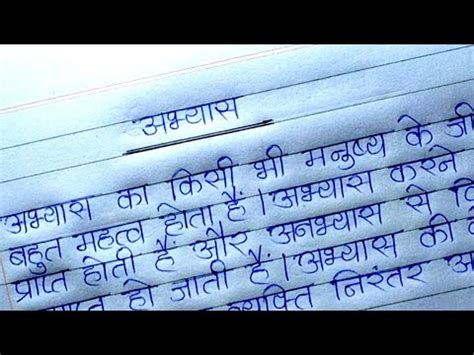 अभ्यास
अभ्यास का किसी भी मनुष्य के जी
बहुत महत्व होता है । अभ्यास करने
प्राप्त होती है और अनभ्यास से
हो जाती है। अभ्यास की
निरंतर